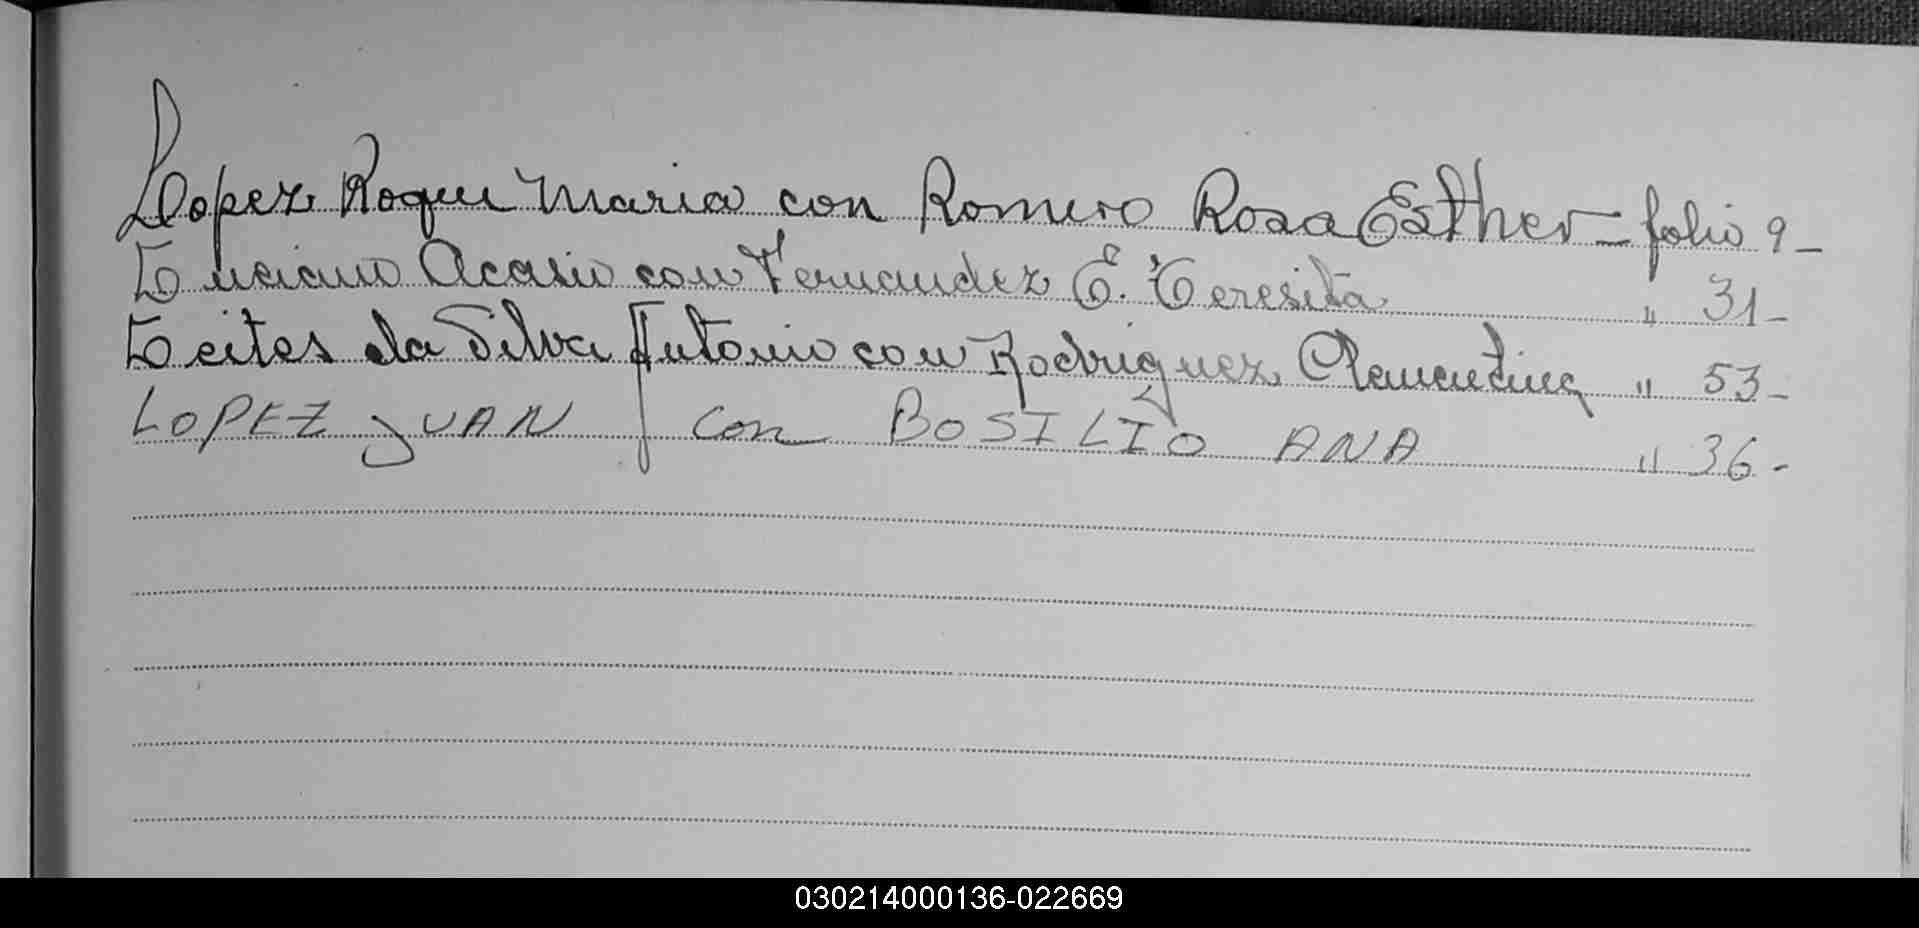 Lopez Roque Maria con Romero Rosa Esther - folio 9 -
Luciano Acasio con Fernandez E. Teresita " 31 -
Leites da Silva Antonio con Rodriguez Clementina " 53 -
LOPEZ JUAN con BOSILIO ANA " 36 -
030214000136-022669